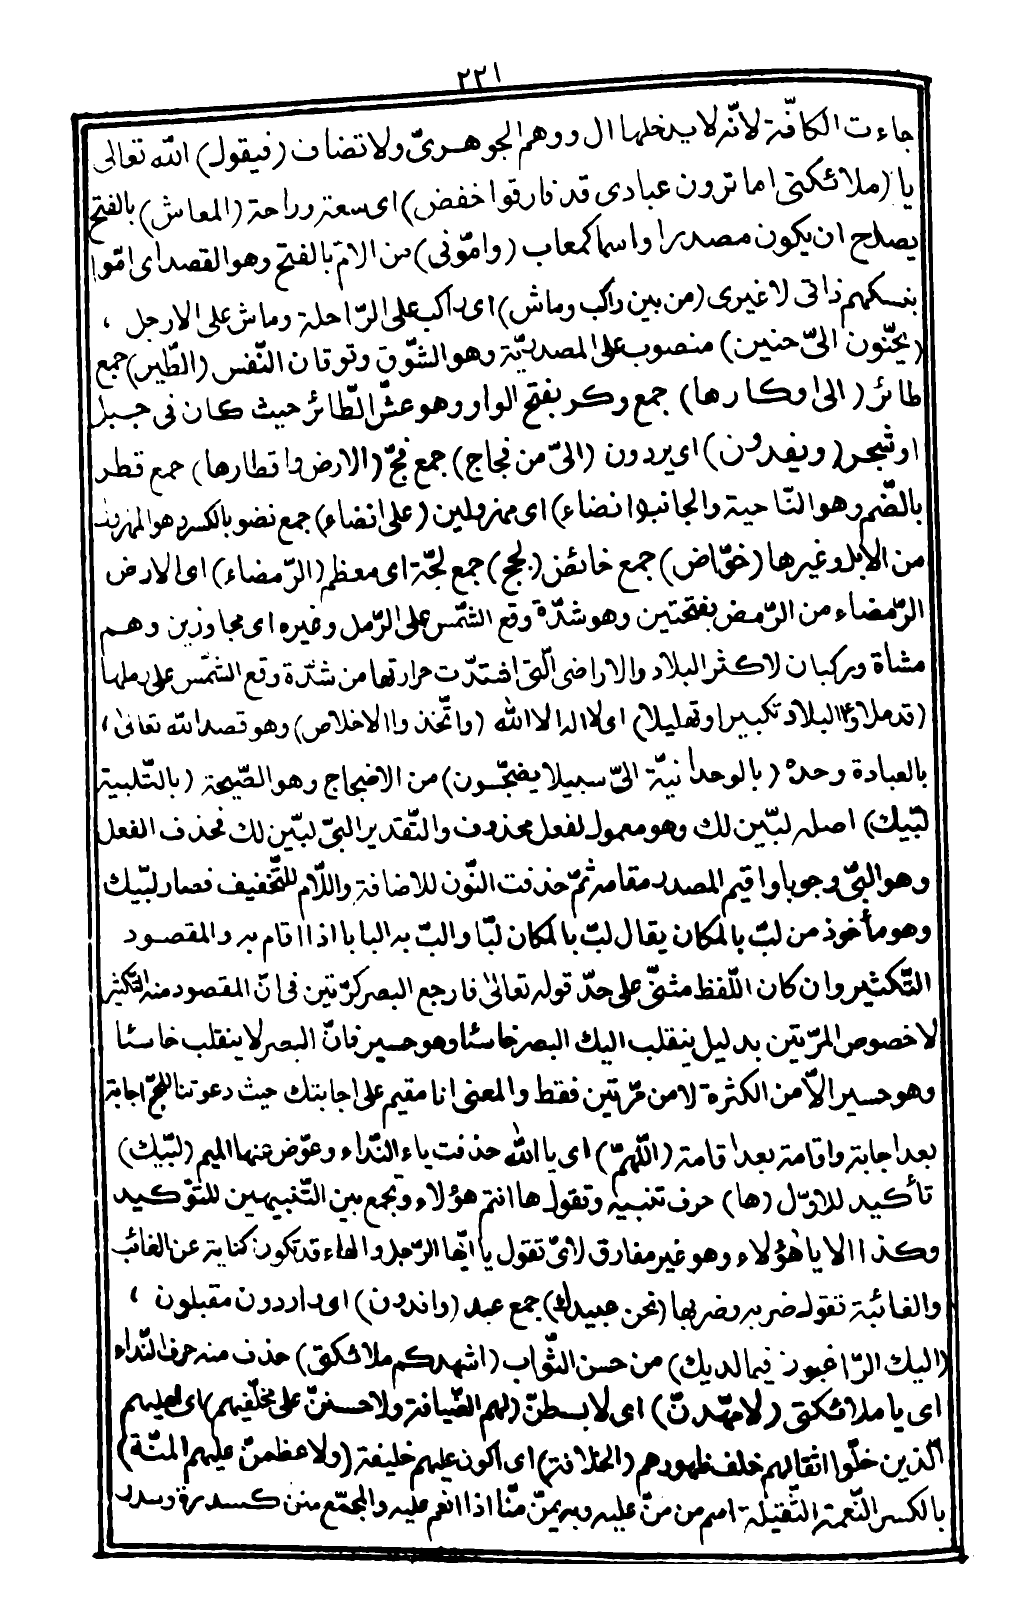 ٢٢١
جاءت الكافّة لانّه لا يدخلها ال ووهم الجوهرىّ ولا تضاف (فيقول) الله تعالى
يا (ملائكتى اما ترون عبادى قد فارقوا خفض) اى سعة وراحة (المعاش) بالفتح
يصلح ان يكون مصدرا واسما كمعاب (وامّونى) من الامّ بالفتح وهو القصد اى امّوا
بنسكهم ذاتى لا غيرى (من بين راكب وماش) اى راكب على الرّاحلة وماش على الارجل ،
(يحنّون الىّ حنين) منصوب على المصدريّة وهو الشّوق وتوقان النّفس (الطّير) جمع
طائر (الى اوكارها) جمع وكر بفتح الواو وهو عشّ الطّائر حيث كان فى جبل
او شجر (ويفدون) اى يردون (الىّ من فجاج) جمع فجّ (الارض واقطارها) جمع قطر
بالضّم وهو النّاحية والجانب (انضاء) اى مهزولين (على انضاء) جمع نضو بالكسر وهو المهزول
من الابل وغيرها (خوّاض) جمع خائض (لجج) جمع لجّة اى معظم (الرّمضاء) اى الارض
الرّمضاء من الرّمض بفتحتين وهو شدّة وقع الشّمس على الرّمل وغيره اى مجاوزين وهم
مشاة وركبان لاكثر البلاد والاراضى الّتى اشتدّت حرارتها من شدّة وقع الشّمس على رملها
(قد ملاؤا البلاد تكبيرا وتهليلا) اى لا اله الا الله (واتّخذوا الاخلاص) وهو قصد الله تعالى ،
بالعبادة وحده (بالوحدانيّة الىّ سبيلا يضجّون) من الاضجاج وهو الصّيحة (بالتّلبية
لبّيك) اصله لبّين لك وهو معمول لفعل محذوف والتّقدير البّى لبّين لك فحذف الفعل
وهو البّى وجوبا واقيم المصدر مقامه ثمّ حذفت النّون للاضافة واللّام للتّخفيف فصار لبّيك
وهو مأخوذ من لبّ بالمكان يقال لبّ بالمكان لبّا والبّ به البابا اذا اقام به والمقصود
التّكثير وان كان اللّفظ مثنّى على حدّ قوله تعالى فارجع البصر كرّتين فى انّ المقصود منه التّكثير
لا خصوص المرّتين بدليل ينقلب اليك البصر خاسئا وهو حسير فانّ البصر لا ينقلب خاسئا
وهو حسير الاّ من الكثرة لا من مرّتين فقط والمعنى انا مقيم على اجابتك حيث دعوتنا للحجّ اجابة
بعد اجابة واقامة بعد اقامة (اللّهمّ) اى يا الله حذفت ياء النّداء وعوّض عنها الميم (لبّيك)
تأكيد للاوّل (ها) حرف تنبيه وتقول ها انتم هؤلاء وتجمع بين التّنبيهين للتّوكيد
وكذا الا يا هؤلاء وهو غير مفارق لاىّ تقول يا ايّها الرّجل والهاء قد تكون كناية عن الغائب
والغائبة تقول ضربه وضربها (نحن عبيدك) جمع عبد (واندون) اى واردون مقبلون ،
(اليك الرّاغبون فيما لديك) من حسن الثّواب (اشهدكم ملائكتى) حذف منه حرف النّداء
اى يا ملائكتى (لامهّدنّ) اى لابسطنّ (لهم الضّيافة ولاحسننّ على مخلّفيهم) اى اهليهم
الّذين خلّوا اثقالهم خلف ظهورهم (الخلافة) اى اكون عليهم خليفة (ولاعظمنّ عليهم المنّة)
بالكسر النّعمة الثّقيلة اسم من منّ عليه وبه يمنّ منّا اذا انعم عليه والجمع منن كسدرة وسدر